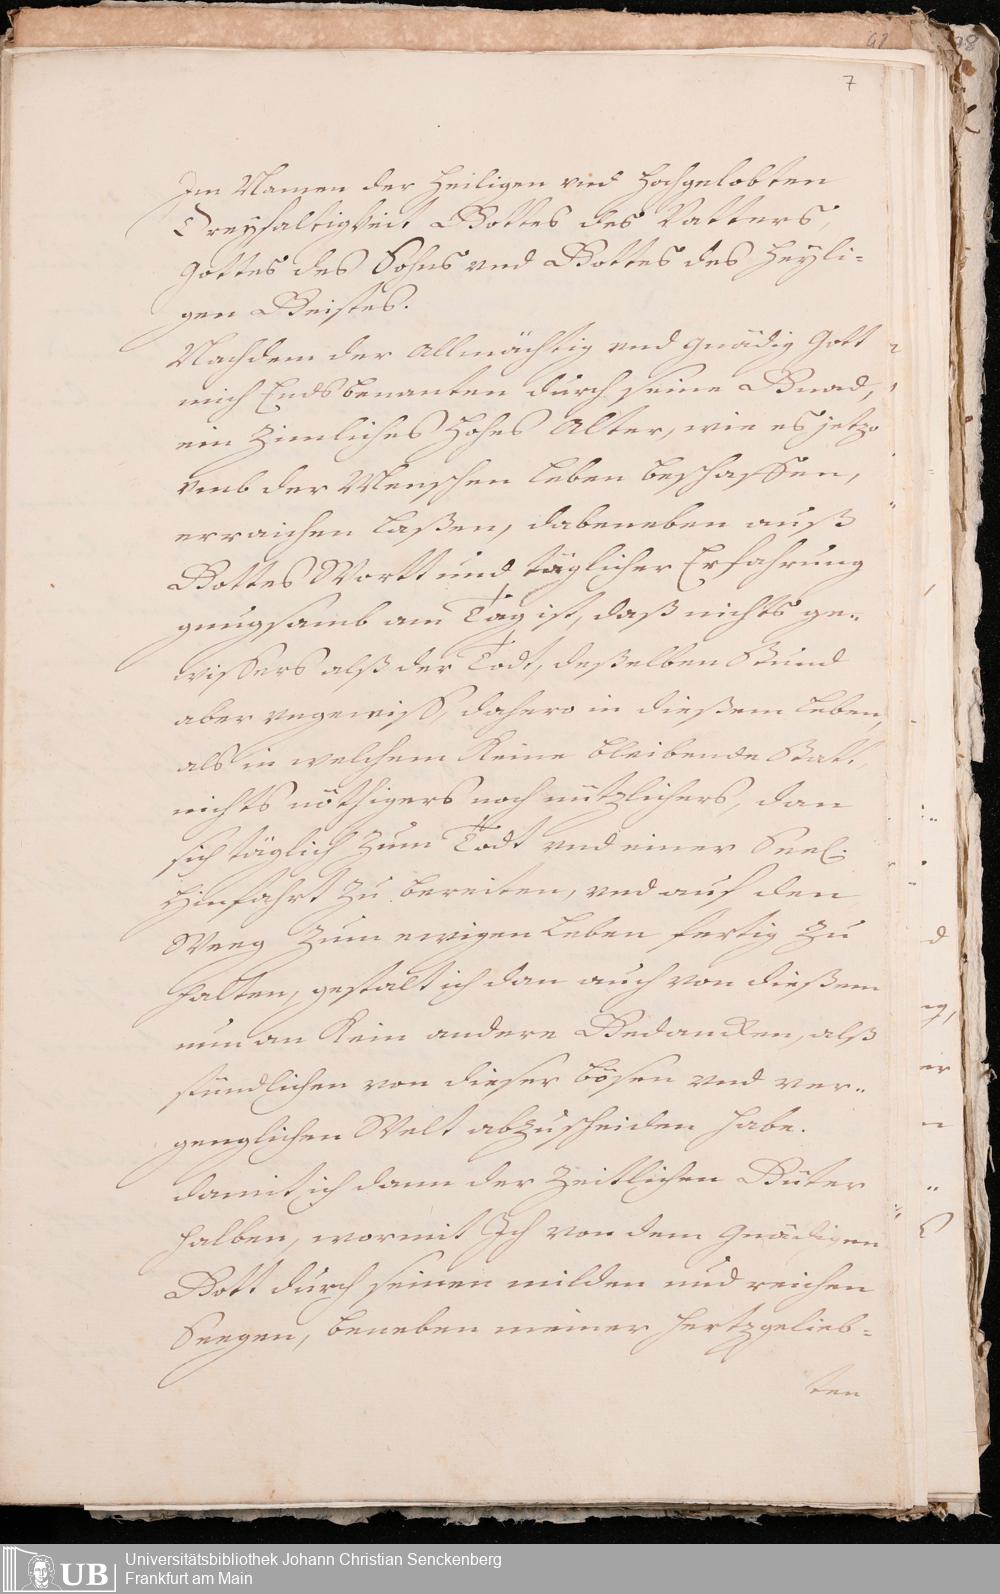 7
Im Namen der Heiligen vnd Hochgelobten
Dreyfaltigkeit Gottes des Vatters,
Gottes des Sohns vnd Gottes des Heyli-
gen Geistes.
Nachdem der Allmächtig vnd Gnädig Gott
mich Endsbenanten durch seine Gnad,
ein Zimliches Hohes Alter, wie es jetzo
vmb der Menschen Leben beschaffen,
erraichen laßen, dabeneben auß
Gottes Wortt und täglicher Erfahrung
gnugsamb am Tag ist, daß nichts ge-
wissers alß der Todt, deßelben Stund
aber vngewiss, dahero in dießem Leben,
als in welchem Keine bleibende Statt,
nichts nöthigers noch nützlichers, dan
sich täglich Zum Todt vnd einer Seel.
Hinfahrt Zu bereiten, vnd auf den
Weeg Zum ewigen Leben fertig Zu
halten, gestalt ich dan auch von dießem
nun an Kein andere Gedancken, alß
stündlichen von dieser bösen vnd ver-
genglichen Welt abzuscheiden habe.
damit ich dann der Zeitlichen Güter
halben, wormit Ich von dem Gnädigen
Gott durch seinen milden und reichen
Seegen, beneben meiner Hertzgelieb-
ten
UB
Universitätsbibliothek Johann Christian Senckenberg
Frankfurt am Main